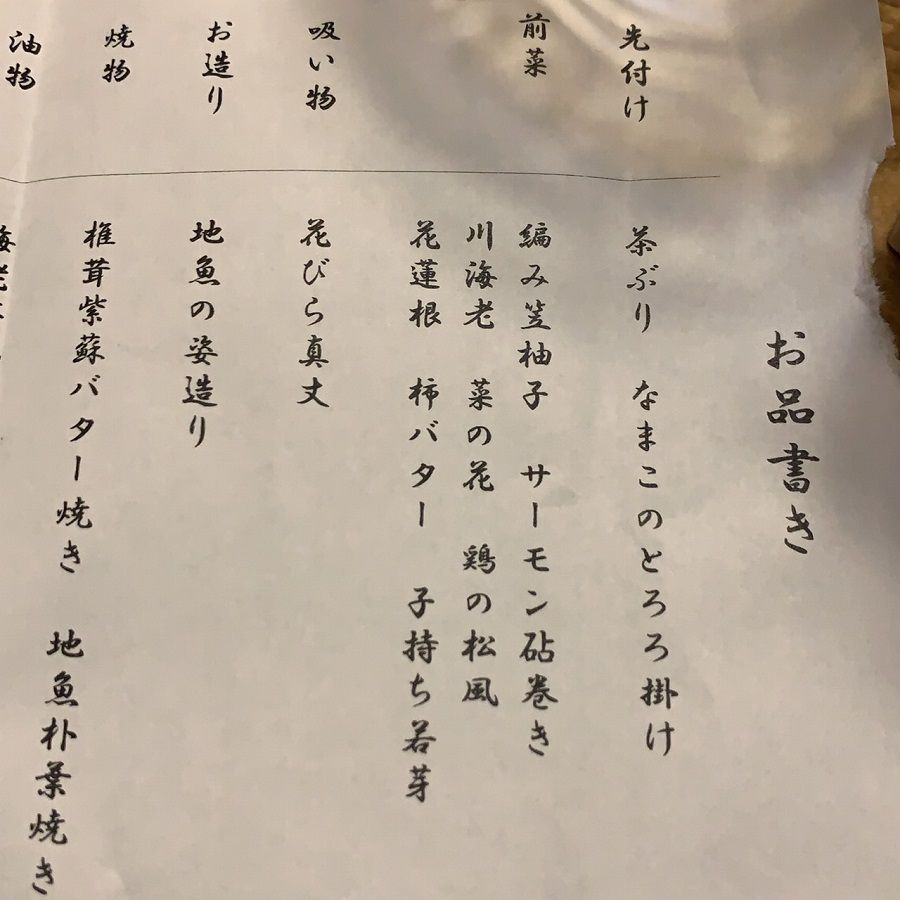 お品書き
先付け
茶ぶり　なまこのとろろ掛け
前菜
編み笠柚子　サーモン砧巻き
川海老　菜の花　鶏の松風
花蓮根　柿バター　子持ち若芽
吸い物
花びら真丈
お造り
地魚の姿造り
焼物
椎茸紫蘇バター焼き　地魚朴葉焼き
油物